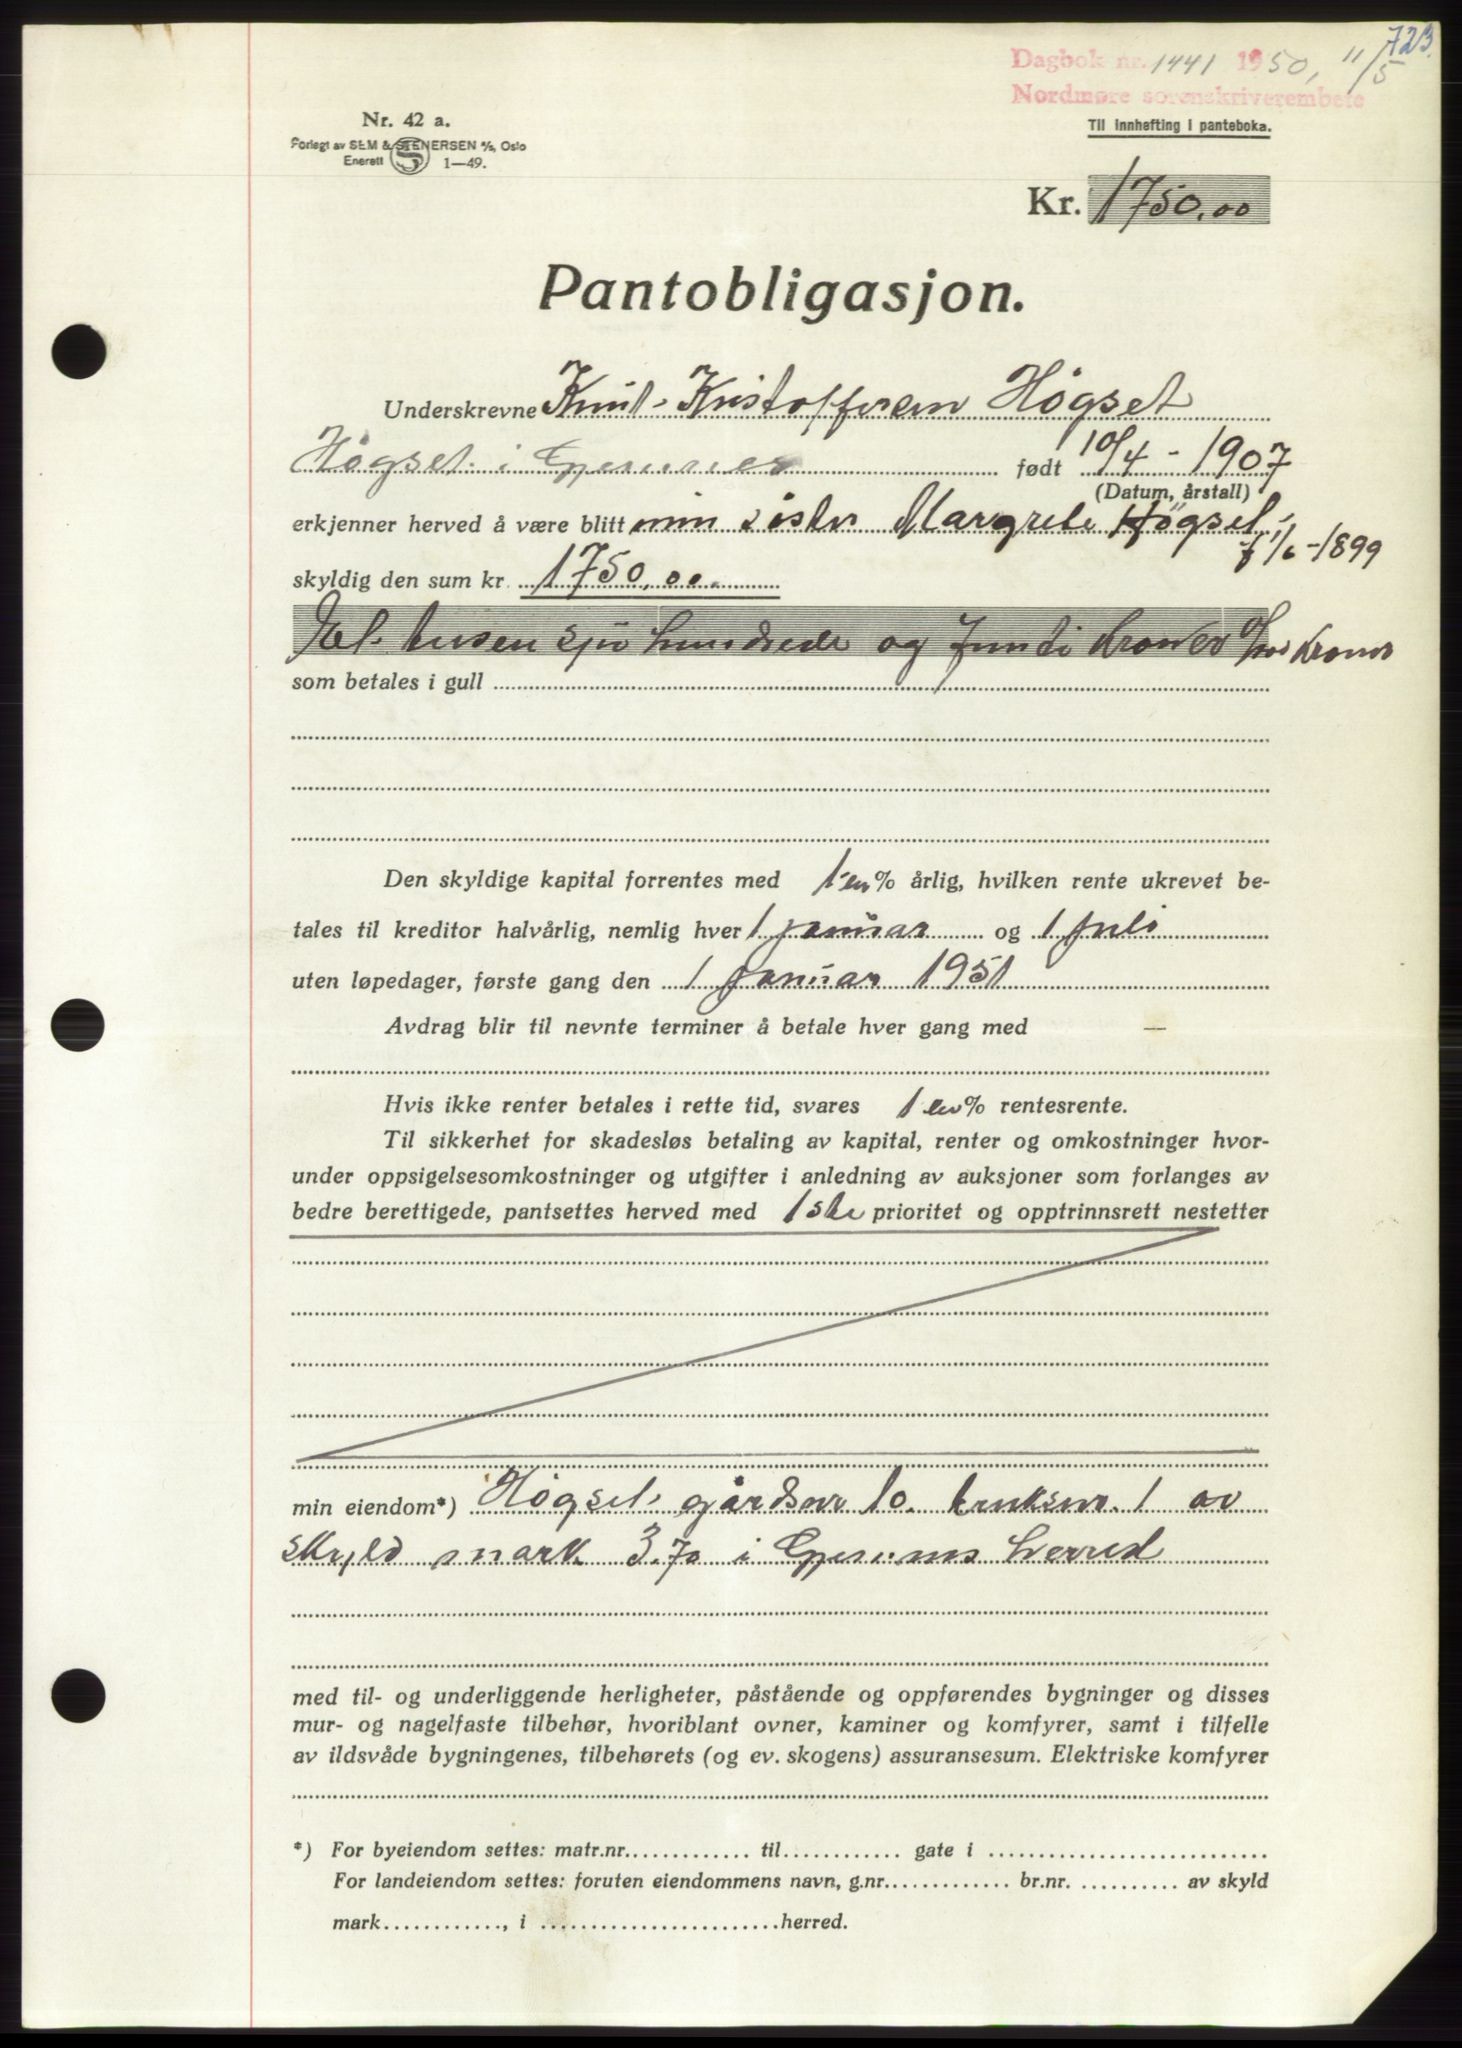 723.
Dagbok nr. 1441 1950, 11/5
Nordmøre sorenskriverembete
Til innhefting i panteboka.
Nr. 42 a.
Forlagt av SEM & STENERSEN A/S, Oslo
Enerett 1—49.
Kr. 1750.00
Pantobligasjon.
Underskrevne Knut Kristoffersen Høgset
Høgset i Gjemnes født 10/4 - 1907
(Datum, årstall)
erkjenner herved å være blitt min søster Margrete Høgset
f 1/6 -1899
skyldig den sum kr. 1750.00.
Et tusen sju hundrede og femti kroner 0/00 kroner
som betales i gull
Den skyldige kapital forrentes med 1 en % årlig, hvilken rente ukrevet be-
tales til kreditor halvårlig, nemlig hver 1 januar og 1 juli
uten løpedager, første gang den 1 januar 1951
Avdrag blir til nevnte terminer å betale hver gang med —
Hvis ikke renter betales i rette tid, svares 1 en % rentesrente.
Til sikkerhet for skadesløs betaling av kapital, renter og omkostninger hvor-
under oppsigelsesomkostninger og utgifter i anledning av auksjoner som forlanges av
bedre berettigede, pantsettes herved med 1ste prioritet og opptrinnsrett nestetter
min eiendom*) Høgset gårdsnr 10. bruksnr. 1 av
skyld mark 3.70 i Gjemnes herred
med til- og underliggende herligheter, påstående og oppførendes bygninger og disses
mur- og nagelfaste tilbehør, hvoriblant ovner, kaminer og komfyrer, samt i tilfelle
av ildsvåde bygningenes, tilbehørets (og ev. skogens) assuransesum. Elektriske komfyrer
*) For byeiendom settes: matr.nr. til gate i
For landeiendom settes: foruten eiendommens navn, g.nr. br.nr. av skyld
mark, i herred.